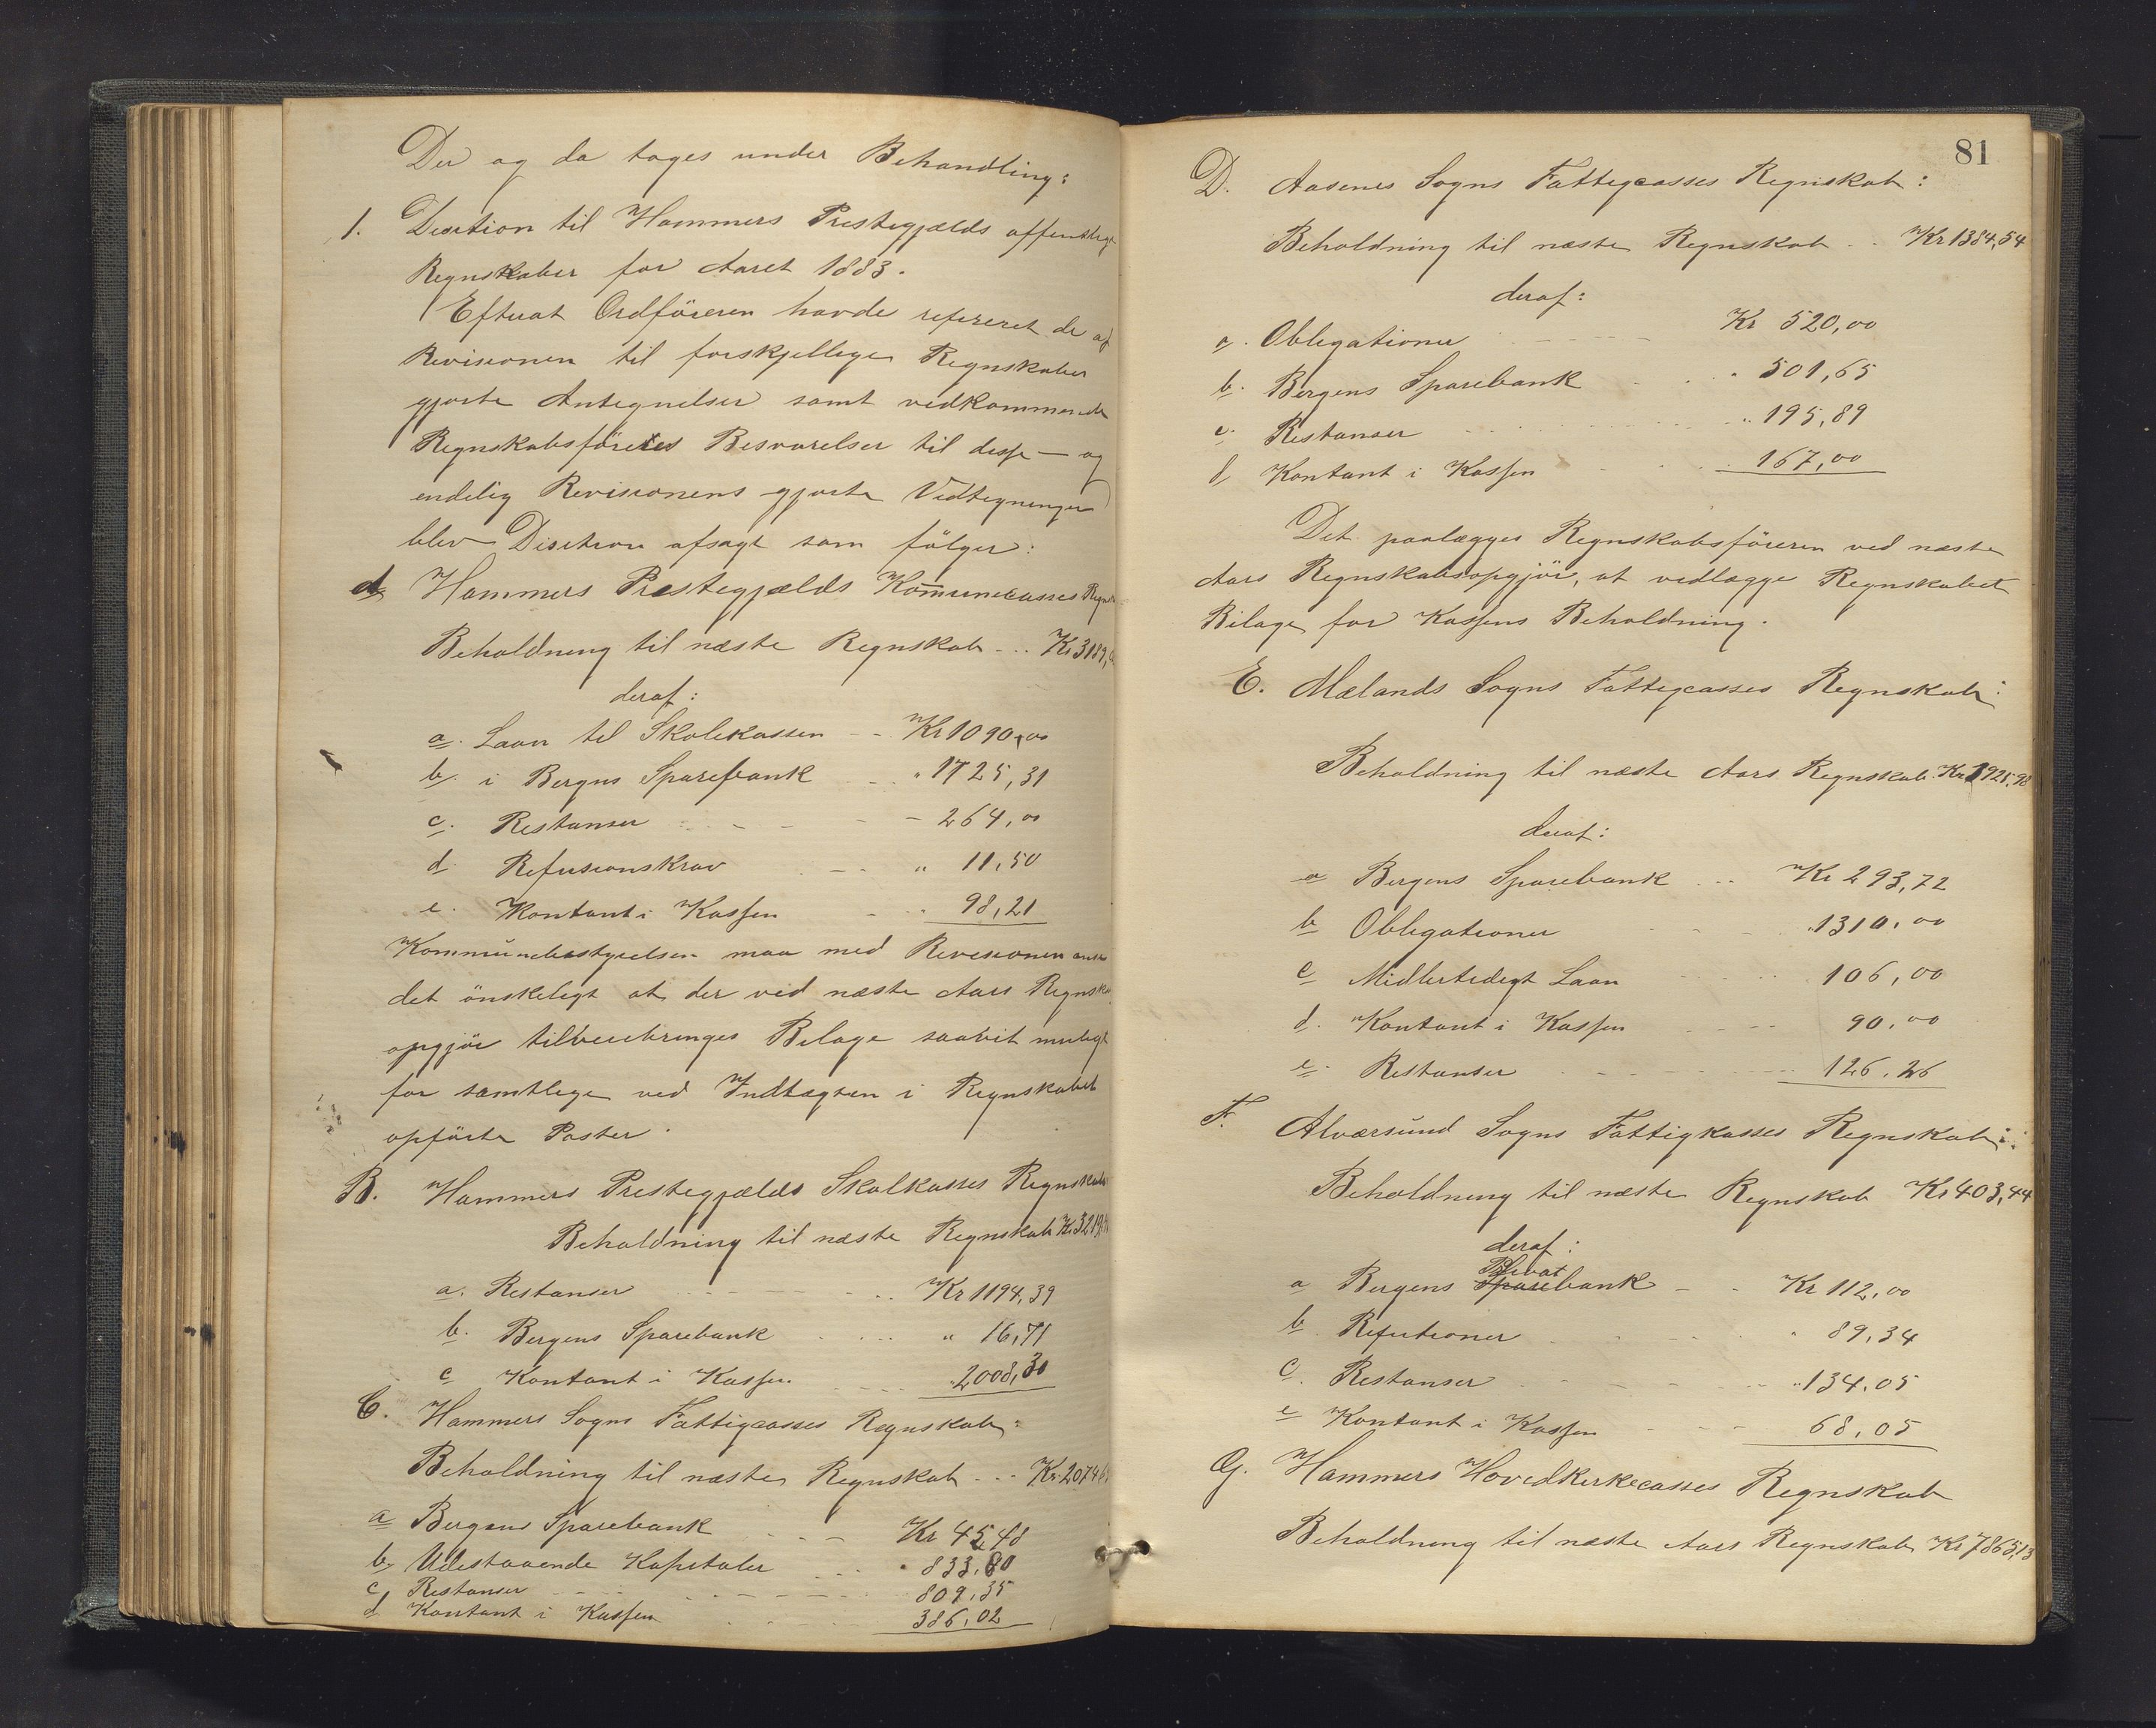 Der og da toges under Behandling:
1. Desition til Hammers Prestegjælds offentlige
Regnskaber for Aaret 1883.
Efterat Ordföreren havde refereret de af
Revisionen til forskjellige Regnskaber
gjorte Antegnelser samt vedkommende
Regnskabsföreres Besvarelser til disse — og
endelig Revisionens gjorte Vedtegninger
blev Disition afsagt som fölger:
A Hammers Prestegjælds Kommunecasses
Beholdning til næste Regnskab - .. Kr 3189,
deraf:
a. Laan til Skolekassen - - Kr 1090,00
b. i Bergens Sparebank " 1725,31
c. Restanser - 264,00
d. Refusionskrav " 11,50
e. Kontant i Kassen 98,21
Kommunebestyrelsen maa med Revisionen anse
det önskeligt at der ved næste Aars
opgjör tilveiebringes Bilage saavit muligt
for samtlige ved Indtægten i Regnskabet
opförte Poster.
B. Hammers Prestegjælds Skolkasses Regnskab
Beholdning til næste Regnskab Kr 3219,
a. Restanser Kr 1194,39
b. Bergens Sparebank " 16,71
c Kontant i Kassen "2008,30
C. Hammers Sogns Fattigcasses Regnskab:
Beholdning til næste Regnskab - .. Kr 2074,
a Bergens Sparebank Kr 45,48
b Udestaaende Kapitaler " 833,80
c Restanser 809,35
d Kontant i Kassen 386,02
81
D. Aasenes Sogns Fattigcasses Regnskab:
Beholdning til næste Regnskab .. Kr 1384,54
deraf:
a. Obligationer Kr 520,00
b. Bergens Sparebank " 501,65
c. Restanser " 195,89
d Kontant i Kassen 167,00
Det paalægges Regnskabsföreren ved næste
Aars Regnskabsopgjör, at vedlægge Regnskabet
Bilage for Kassens Beholdning.
E. Mælands Sogns Fattigcasses Regnskab:
Beholdning til næste Aars Regnskab Kr 1925,98
deraf:
a Bergens Sparebank ... Kr 293,72
b Obligationer "1310,00
c Midlertidigt Laan 106,00
d. Kontant i Kassen 90,00
e. Restanser 126,26
F. Alværsund Sogns Fattigkasses Regnskab:
Beholdning til næste Regnskab Kr 403,44
deraf:
Privat
a Bergens Sparebank - - Kr 112,00
b Refutioner " 89,34
c. Restanser "134,05
e Kontant i Kassen 68,05
G. Hammers Hovedkirkecasses Regnskab
Beholdning til næste Aars Regnskab Kr 7865,13